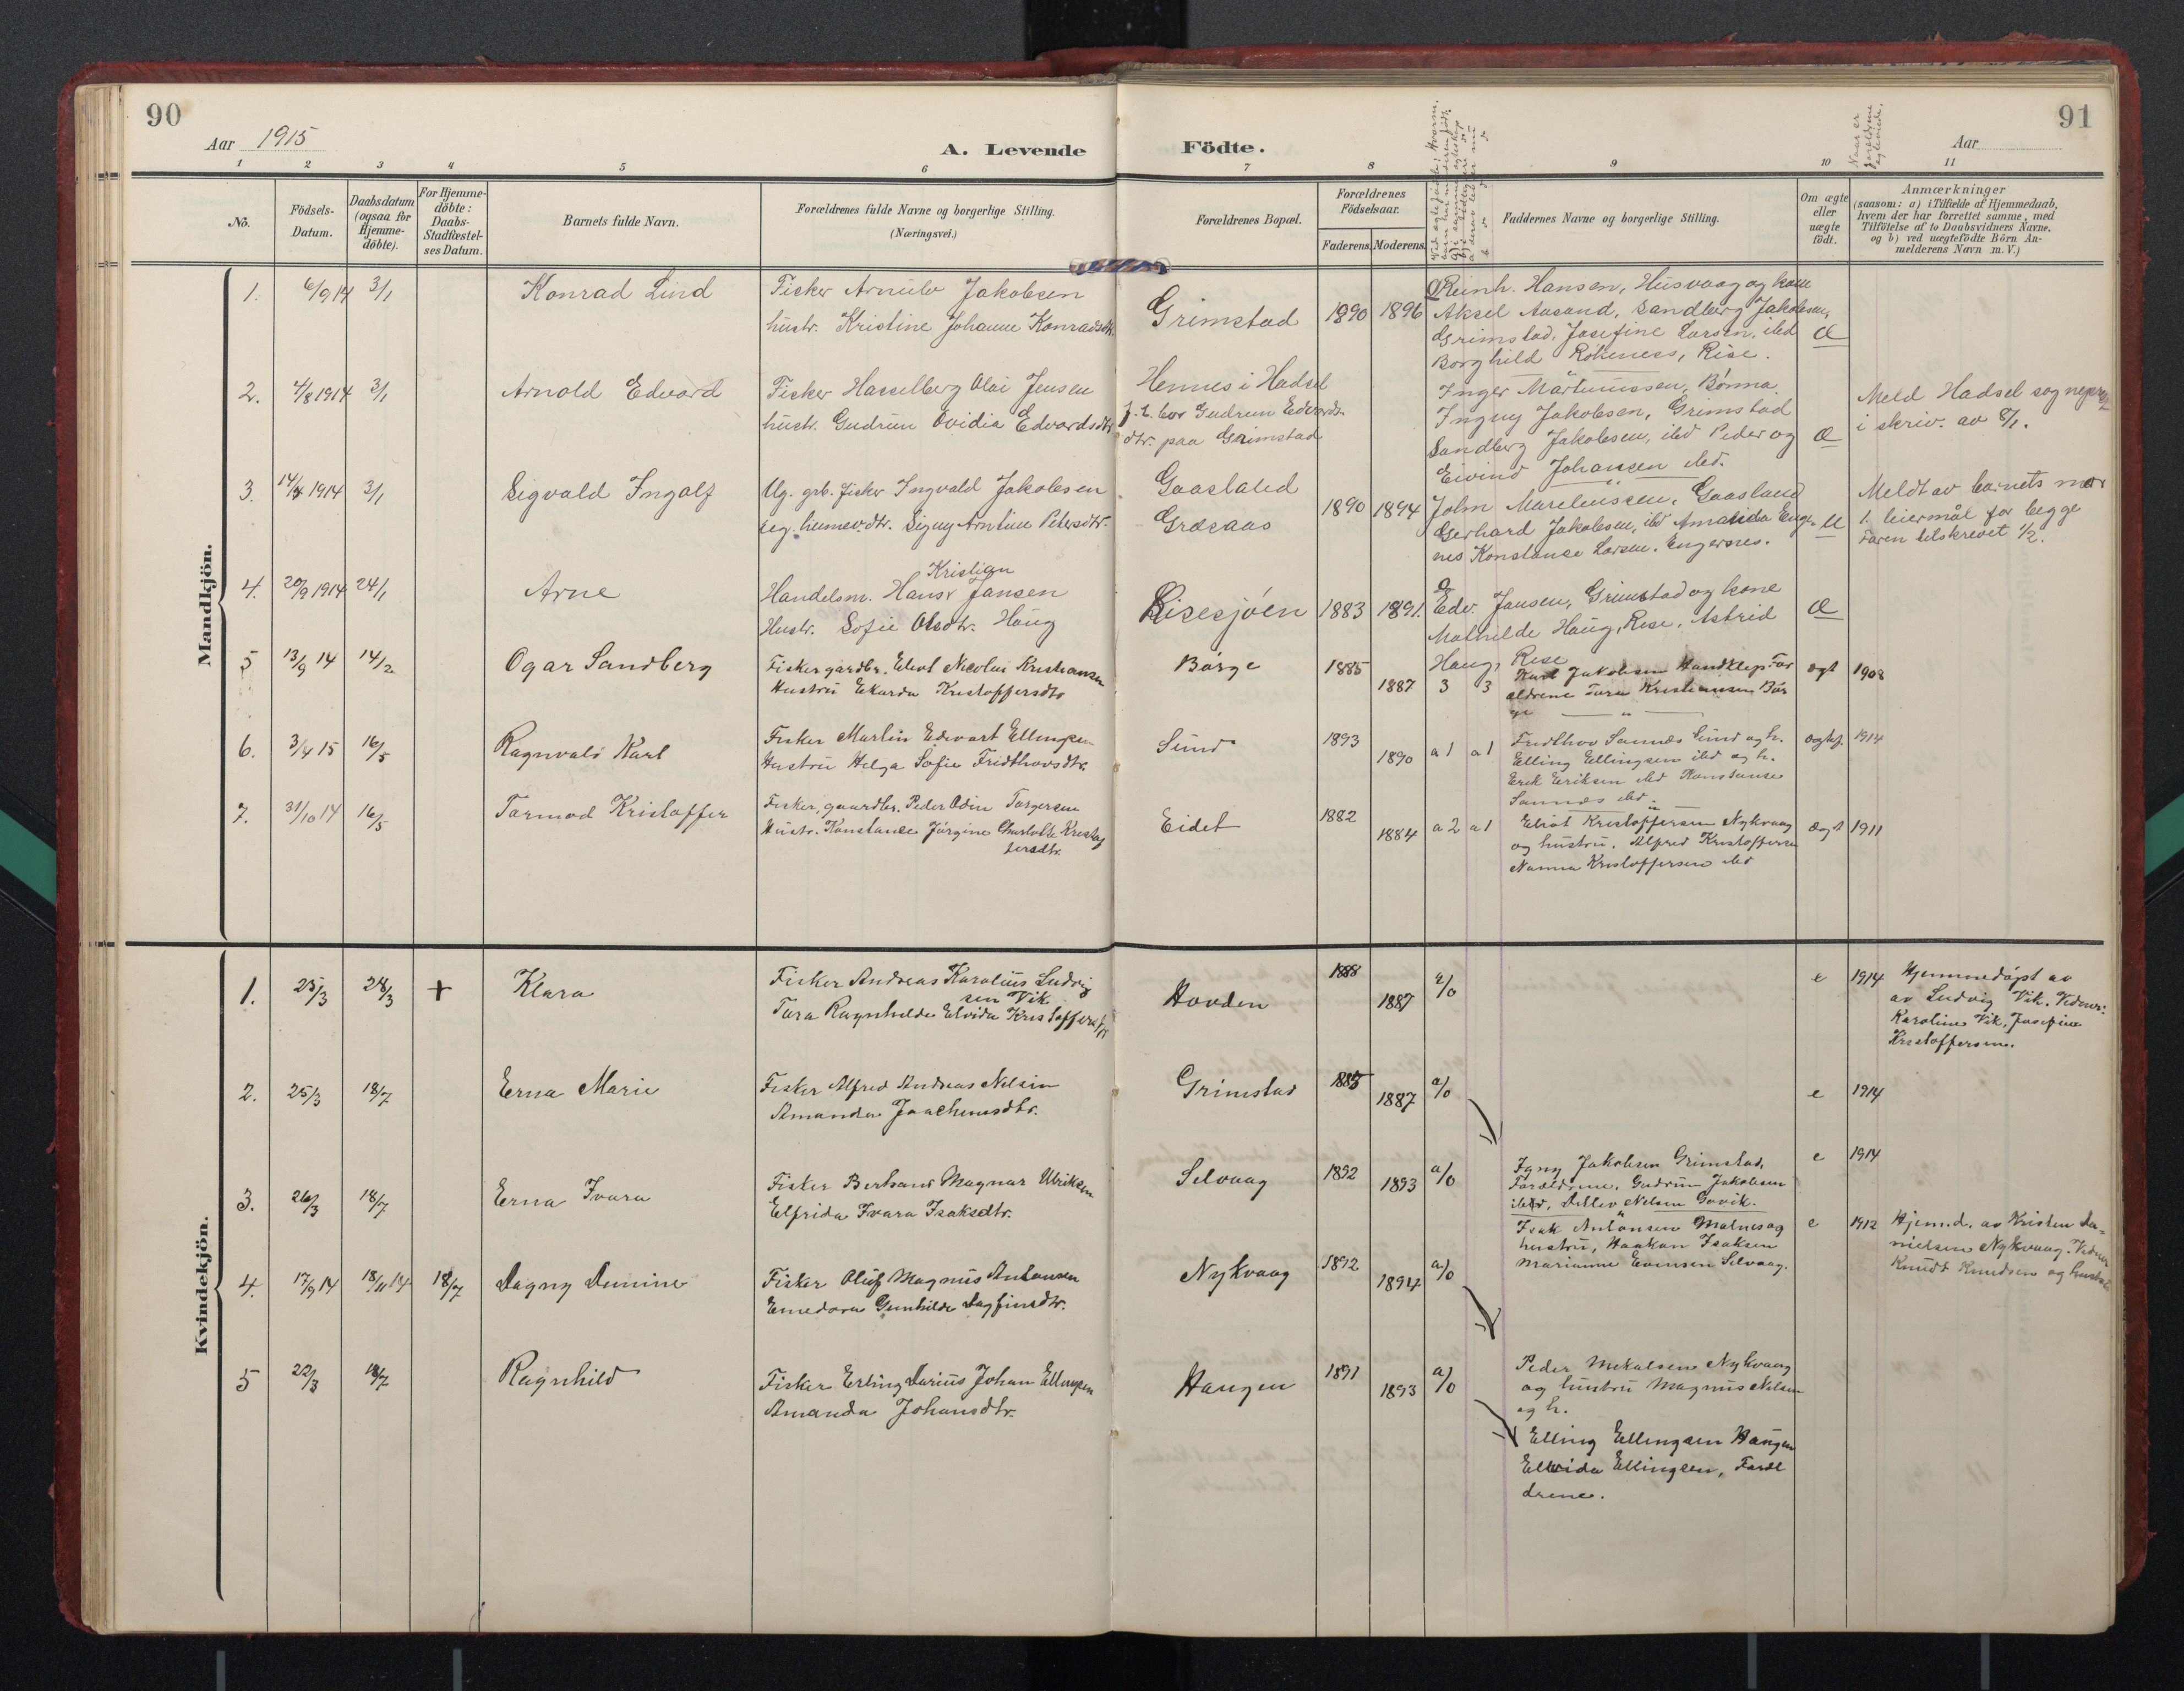 90
91
Aar 1915
A. Levende
Födte.
Aar
1 2 3 4 5 6 7 8 9 10 11
No.
Födsels-
Datum.
Daabsdatum
(ogsaa for
Hjemme-
döbte).
For Hjemme-
döbte:
Daabs-
Stadfæstel-
ses Datum.
Barnets fulde Navn.
Forældrenes fulde Navne og borgerlige Stilling.
(Næringsvei.)
Forældrenes Bopæl.
Forældrenes
Födselsaar.
Faderens. Moderens.
Faddernes Navne og borgerlige Stilling.
Om ægte
eller
uægte
födt.
Anmærkninger
(saasom: a) i Tilfælde af Hjemmedaab,
hvem der har forrettet samme, med
Tilföielse af to Daabsvidners Navne,
og b) ved uægtefödte Börn An-
melderens Navn m.V.)
Naar er
forældrene
egteviede.
Mandkjön.
1. 6/9 14 3/1 Konrad Lind
Fisker Arnulv Jakobsen
hustr. Kristine Johanne Konradsdtr.
Grimstad 1890 1896
Reinh. Hansen, Husvaag og kone
Aksel Aasand, Sandberg Jakobsen,
Grimstad, Josefine Larsen, ibd
Borghild Rökenes, Rise.
Æ
2. 4/8 1914 3/1 Arnold Edvard
Fisker Hasselberg Olai Jensen
hustr. Gudrun Ovidia Edvardsdtr.
Hennes i Hadsel
f. t. bor Gudrun Edvards-
dtr. paa Grimstad
Inger Martinussen, Bönna
Ingny Jakobsen, Grimstad
Sandberg Jakobsen, ibd Peder og
Eivind Johansen ibd.
Æ
Meld Hadsel sogneprest
i skriv. av 8/1.
3. 14/7 1914 3/1 Sigvald Ingolf
Ug. grb. fisker Ingvald Jakobsen
ug. husmdtr. Signy Arntine Petersdtr.
Gaasland
Græsaas
1890 1894
John Mareliussen, Gaasland
Gerhard Jakobsen, ibd Amanda Enge-
nes Konstanse Larsen, Engenes.
U
Meldt av barnets mor
1. leiermål for begge
Faren tilskrevet 1/2.
4. 20/9 1914 24/1 Arne
Handelsm. Hans Kristian Jansen
Hustr. Sofie Olsdtr. Haug
Risesjöen 1883 1891.
Edv. Jansen, Grimstad og kone
Mathilde Haug, Rise, Astrid
Haug, Rise
Æ
5 13/9 14 14/2 Ogar Sandberg
Fisker gardbr. Eliot Nicolai Kristiansen
Hustru Ekarda Kristoffersdtr
Börge 1885 1887 3 3
Karl Jakobsen Sandklep. For
ældrene Tora Kristiansen Bör
ge
ægt 1908
6. 3/4 15 16/5 Ragnvald Karl
Fisker Martin Edvart Ellingsen
Hustru Helga Sofie Fridthovsdtr.
Sund 1893 1890 a 1 a 1
Fridthov Sannes Sund og h.
Elling Ellingsen ibd og h.
Erik Eriksen ibd Konstanse
Sannes ibd.
1914
7. 31/10 14 16/5 Tormod Kristoffer
Fisker, gaardbr. Peder Odin Torgersen
Hustr. Konstanse Jörgine Charlotte Kristof
fersdtr.
Eidet 1882 1884 a 2 a 1
Eliot Kristoffersen Nykvaag
og hustru. Alfred Kristoffersen
Nanna Kristoffersen ibd
Ægt 1911
Kvindekjön.
1. 25/3 28/3 + Klara
Fisker Andreas Karolius Ludvig
sen Vik
Tora Ragnhilda Elvida Kristoffersdtr
Hovden 1888 1887 a/0
e 1914
Hjemmedöpt av
av Ludvig Vik. Vidner:
Karoline Vik, Josefine
Kristoffersen.
2. 25/3 18/7 Erna Marie
Fisker Alfred Andreas Nelsen
Amanda Joachimsdtr.
Grimstad 1885 1887 a/0
e 1914
Igny Jakobsen Grimstad,
Forældrene, Gudrun Jakobsen
ibd, Detlev Nelsen Govik.
3. 26/3 18/7 Erna Ivara
Fisker Berhard Magnar Ulriksen
Elfrida Ivara Isaksdtr.
Selvaag 1892 1893 a/0
e 1914
Isak Antonsen Malnes og
hustru, Haakon Isaksen
Marianne Evensen Selvaag.
4. 17/9 14 18/11 14 18/7 Dagny Demine
Fisker Oluf Magnus Antonsen
Emedora Gunhilde Dagfinsdtr.
Nykvaag 1892 1894 a/0
e 1912
Hjem.d. av Kristen Da-
nielsen Nykvaag. Vidner
Knudt Knudsen og hustru
Peder Mekalsen Nykvaag
og hustru Magnus Nelsen
og h.
5 22/3 18/7 Ragnhild
Fisker Erling Darius Johan Ellingsen
Amanda Johansdtr.
Haugen 1891 1893 a/0
Elling Ellingsen Haugen
Elvida Ellingsen, Foræl
drene.